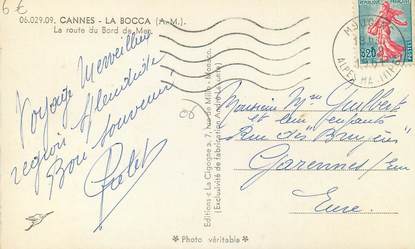 6 €
06.029.09. CANNES - LA BOCCA (A.-M.).
La route du Bord de Mer.
Voyage Merveilleux
région Splendide
Bon souvenir
Editions « La Cigogne », 7, rue du Maure - Monaco.
(Exclusivité de fabrication André Leconte)
0.20
ALPES MARITIMES
Monsieur Mme Guilbert
et leur enfants
Rue des Bruyères
Garennes / Eure
Eure.
* Photo véritable *